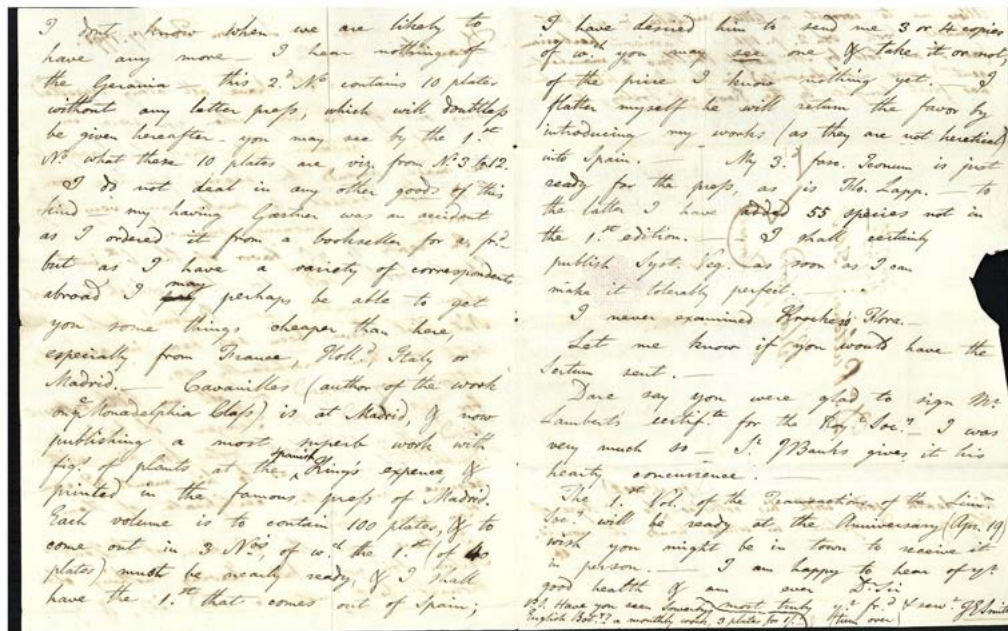 I dont know when we are likely to
have any more — I hear nothing of
the Gerania — this 2.d No. contains 10 plates
without any letter press, which will doubtless
be given hereafter — you may see by the 1.st
No. what these 10 plates are, viz. from No. 3 to 12.
I do not deal in any other goods of this
kind — my having Gærtner was an accident
as I ordered it from a bookseller for a fr.d —
but as I have a variety of correspondents
abroad I may perhaps be able to get
you some things cheaper than here,
especially from France, Holl.d, Italy or
Madrid. — Cavanilles (author of the work
on ye Monadelphia Class) is at Madrid, & now
publishing a most superb work with
figs. of plants at the Spanish King's expence, &
printed in the famous press of Madrid.
Each volume is to contain 100 plates, & to
come out in 3 Nos, of w.ch the 1.st (of 40
plates) must be nearly ready, & I shall
have the 1.st that comes out of Spain;
I have desired him to send me 3 or 4 copies
of w.ch you may see one & take it or not,
of the price I know nothing yet. — I
flatter myself he will return the favor by
introducing my works (as they are not heretical)
into Spain. — My 3.d fasc. Iconum is just
ready for the press, as is Flo. Lapp. — to
the latter I have added 55 species not in
the 1.st edition. — I shall certainly
publish Syst. Veg. as soon as I can
make it tolerably perfect. —
I never examined Krocker's Flora. —
Let me know if you would have the
Sertum sent. —
Dare say you were glad to sign Mr.
Lambert's certif.te for the Roy.l Soc.y — I was
very much so — Sr. J Banks gives it his
hearty concurrence. —
The 1.st Vol. of the Transactions of the Linn.
Soc.y will be ready at the Anniversary (Apr. 19)
wish you might be in town to receive it
in person. — I am happy to hear of yr.
good health & am ever Dr. Sir
most truly yr. fr.d & serv.t JESmith
P.S. Have you seen Sowerby's
English Bot.y? a monthly work, 3 plates for 1/. (turn over)